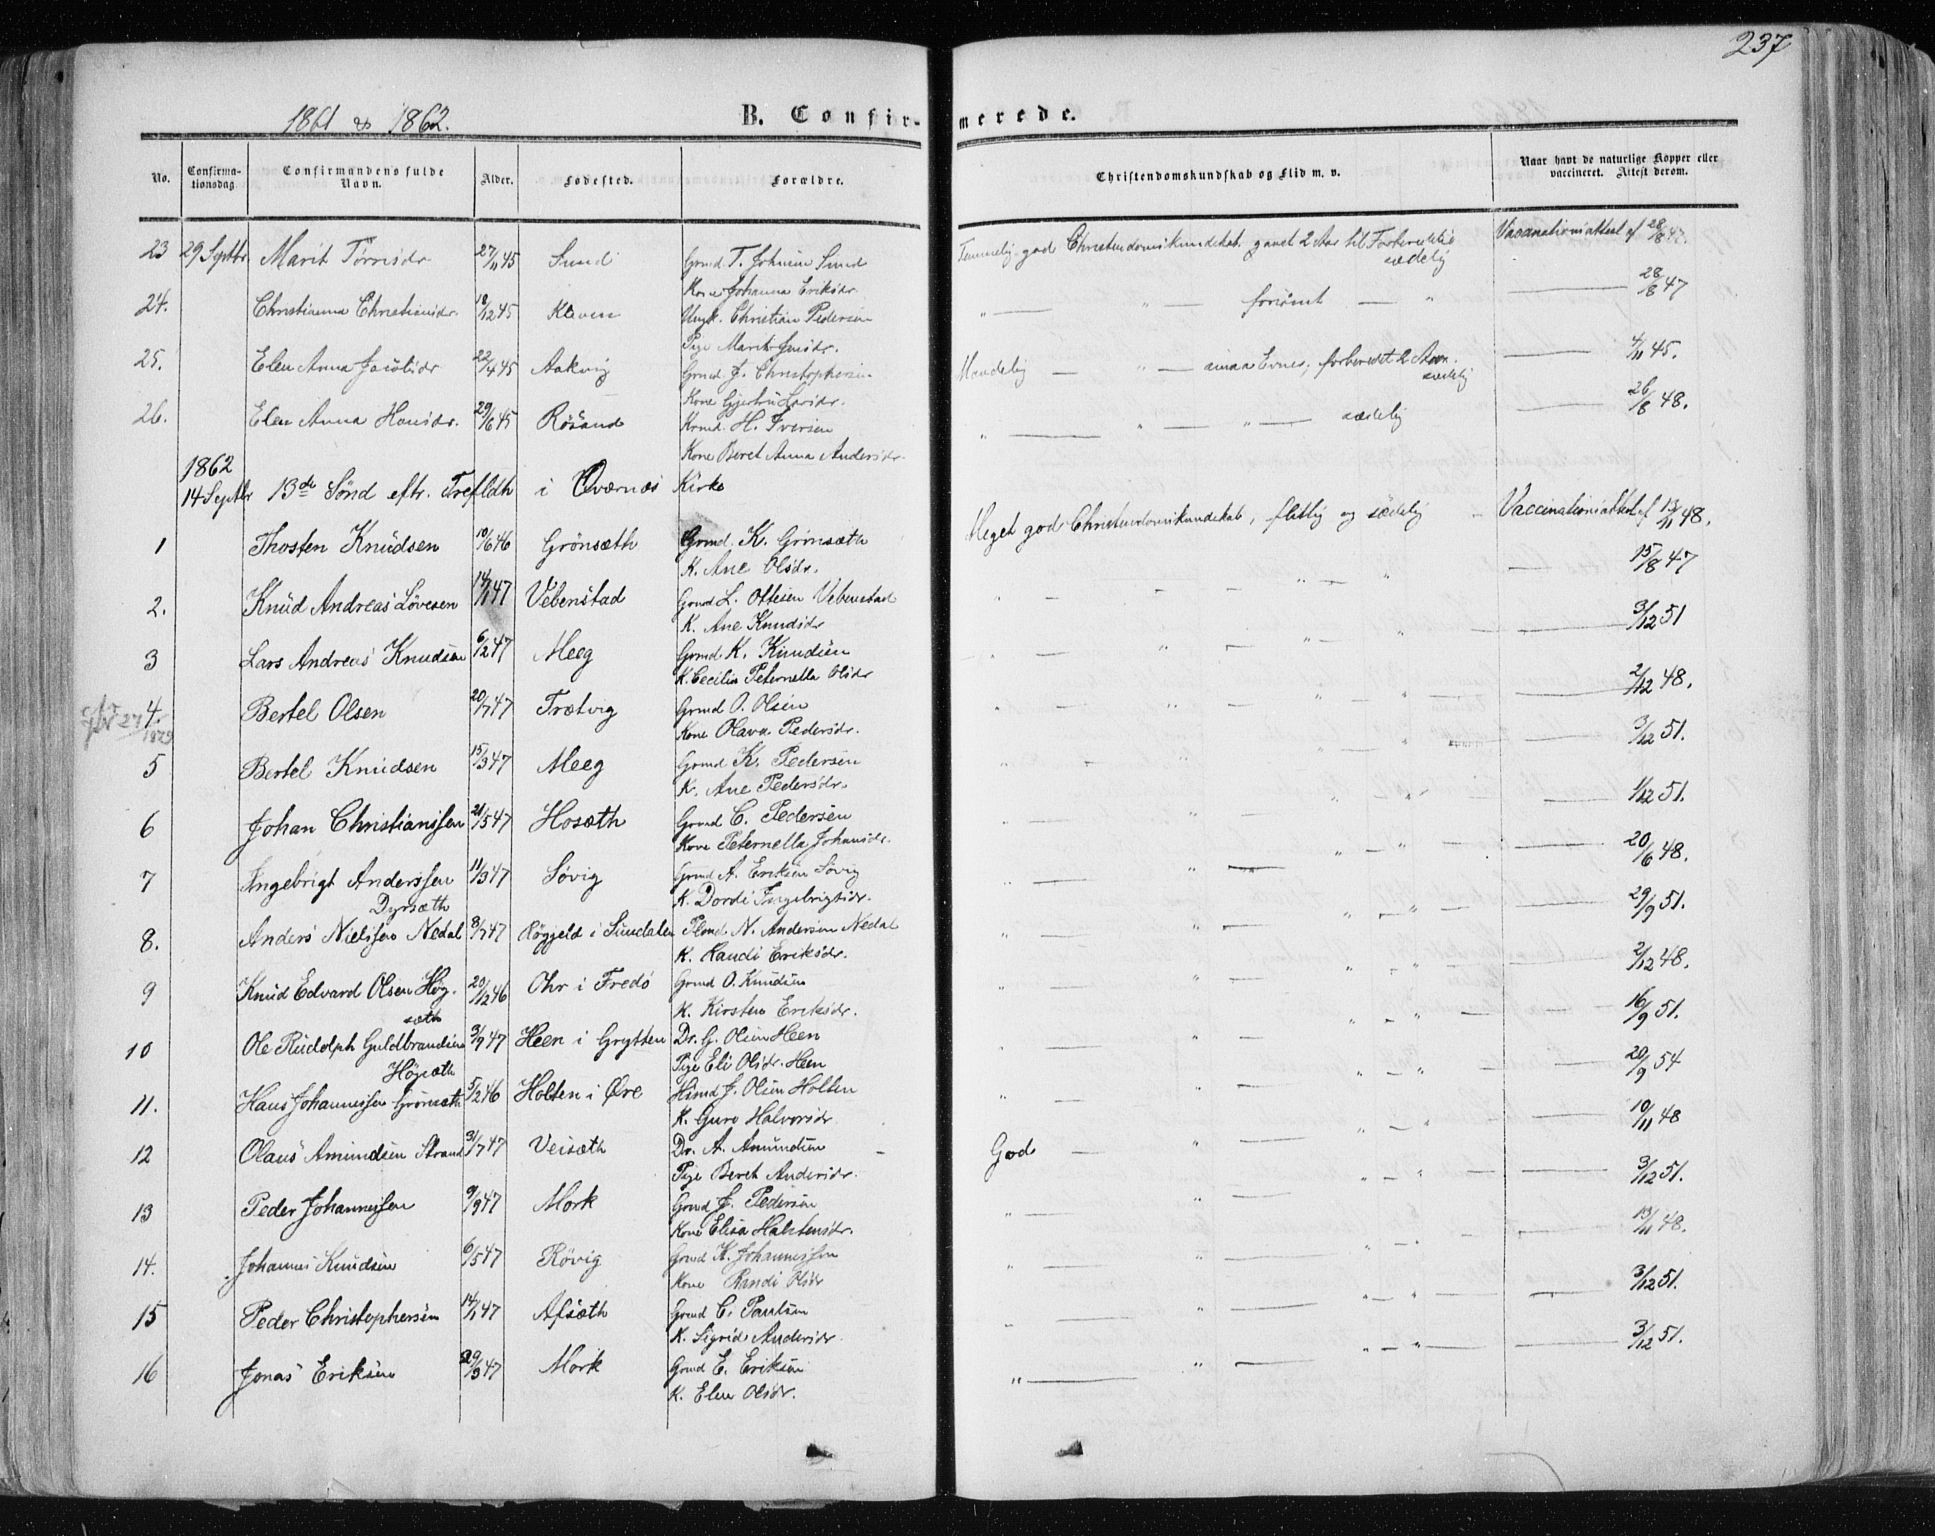 237
1861 & 1862.
B. Confirmerede.
No.
Confirmationsdag
Confirmandens fulde Navn.
Alder.
Fødested.
Forældre.
Christendomskundskab og Flid m. v.
Naar havt de naturlige Kopper eller vaccineret. Attest derom.
23 29 Septbr. Marit Törrisdr 27/11 45 Sund Grmd T. Johnsen Sund
Kone Johanna Eriksdr.
Temmelig god Christendomskundskab, gaaet 2 Aar til Forberedelse sædelig Vaccinationsattest af 28/8 47.
24. Christianna Christiansdr. 18/12 45 Kleven Ungk. Christian Pedersen
Pige Marit Jensdr.
" — " — forsömt — " — 28/8 47
25. Elen Anna Jacobsdr 22/4 45 Aakvig Grmd J. Christophersen
Kone Gjertru Larsdr.
Maadelig — " — smaa Evner, forberedet 2 Aar. sædelig — 4/11 45.
26. Elen Anna Hansdr. 29/6 45 Rösand Krmd. H. Iversen
Kone Beret Anna Andersdr.
" — " — " — sædelig — 26/8 48.
1862
14 Septbr 13de Sönd eftr. Trefldh i Qværnæs Kirke
1 Thosten Knudsen 10/6 46 Grönsæth Grmd. K. Grönsæth
K. Ane Olsdr.
Meget god Christendomskundskab, flittig og sædelig - Vaccinationsattest af 13/11 48.
2. Knud Andreas Lövesen 14/1 47 Vebenstad Grmd L. Ottesen Vebenstad
K. Ane Knudsdr
15/8 47
3 Lars Andreas Knudsen 6/2 47 Meeg Grmd K. Knudsen
K. Cecilia Peternella Olsdr
3/12 51
4. Bertel Olsen 20/7 47 Trætvig Grmd O. Olsen
Kone Olava Pedersdr.
2/12 48.
5 Bertel Knudsen 15/3 47 Meeg Grmd K. Pedersen
K. Ane Pedersdr.
3/12 51.
6 Johan Christianssen 21/5 47 Hosæth Grmd C. Pedersen
Kone Peternella Johansdr.
1/12 51.
7 Ingebrigt Anderssen Dyrsæth 11/3 47 Sövig Grmd A. Eriksen Sövig
K. Dordi Ingebrigtsdr.
20/6 48.
8. Anders Nielssen Nedal 8/7 47 i Sundalen Plmd N. Andersen Nedal
K. Randi Eriksdr.
29/9 51.
9 Knud Edvard Olsen Högsæth 20/12 46 Ohr i Fredö Grmd O. Knudsen
K. Kirsten Eriksdr.
2/12 48.
10 Ole Rudolph Guldbrandsen Högsæth 3/9 47 Heen i Grytten Dr. G. Olsen Heen
Pige Eli Olsdr. Heen
16/9 51.
11. Hans Johannessen Grönsæth 5/2 46 Holten i Øre Hsmd J. Olsen Holten
K. Guro Halvorsdr
20/9 54
12 Olaus Amundsen Strand 31/7 47 Veisæth Dr. A. Amundsen
Pige Beret Andersdr.
God — 10/11 48
13 Peder Johannessen 9/9 47 Mork Grmd J. Pedersen
Kone Elisa Halstensdr.
3/12 51.
14. Johannes Knudsen 6/5 47 Rövig Grmd K. Johannessen
Kone Randi Olsdr
13/11 48.
15 Peder Christophersen 14/1 47 Afsæth Grmd C. Paulsen
K. Sigrid Andersdr.
3/12 51.
16 Jonas Eriksen 29/3 47 Mork Grmd E. Eriksen
K. Elen Olsdr.
3/12 51.